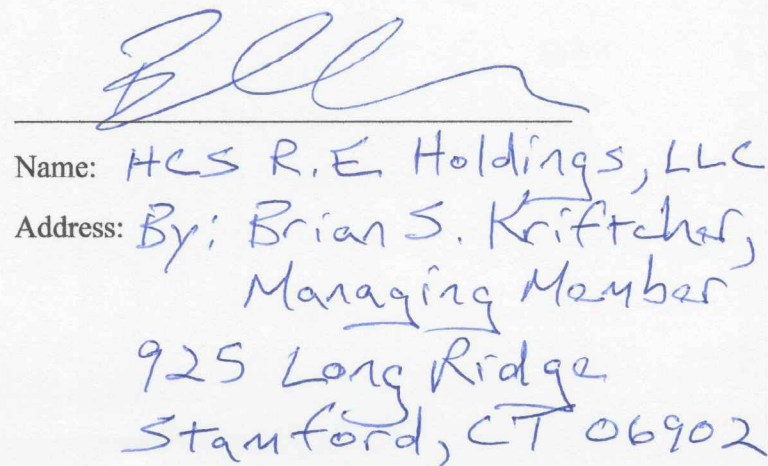 Name: HCS R.E Holdings, LLC
Address: By: Brian S. Kriftcher,
Managing Member
925 Long Ridge
Stamford, CT 06902